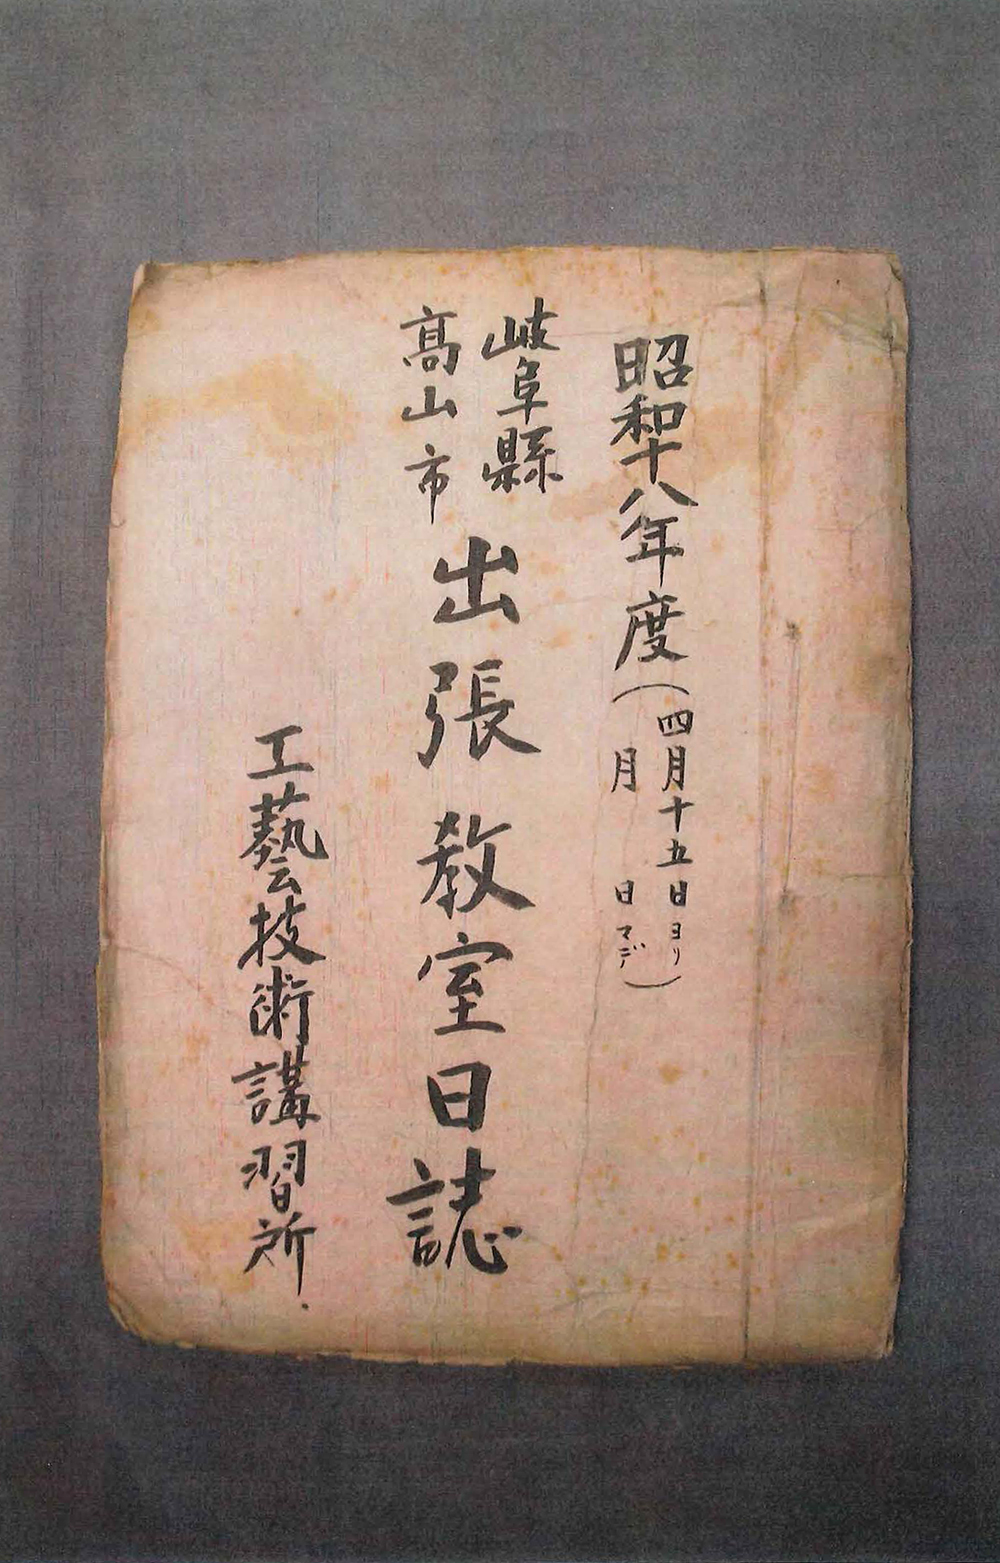 昭和十八年度(四月十五日ヨリ
月　日マデ)
岐阜縣
高山市
出張教室日誌
工藝技術講習所